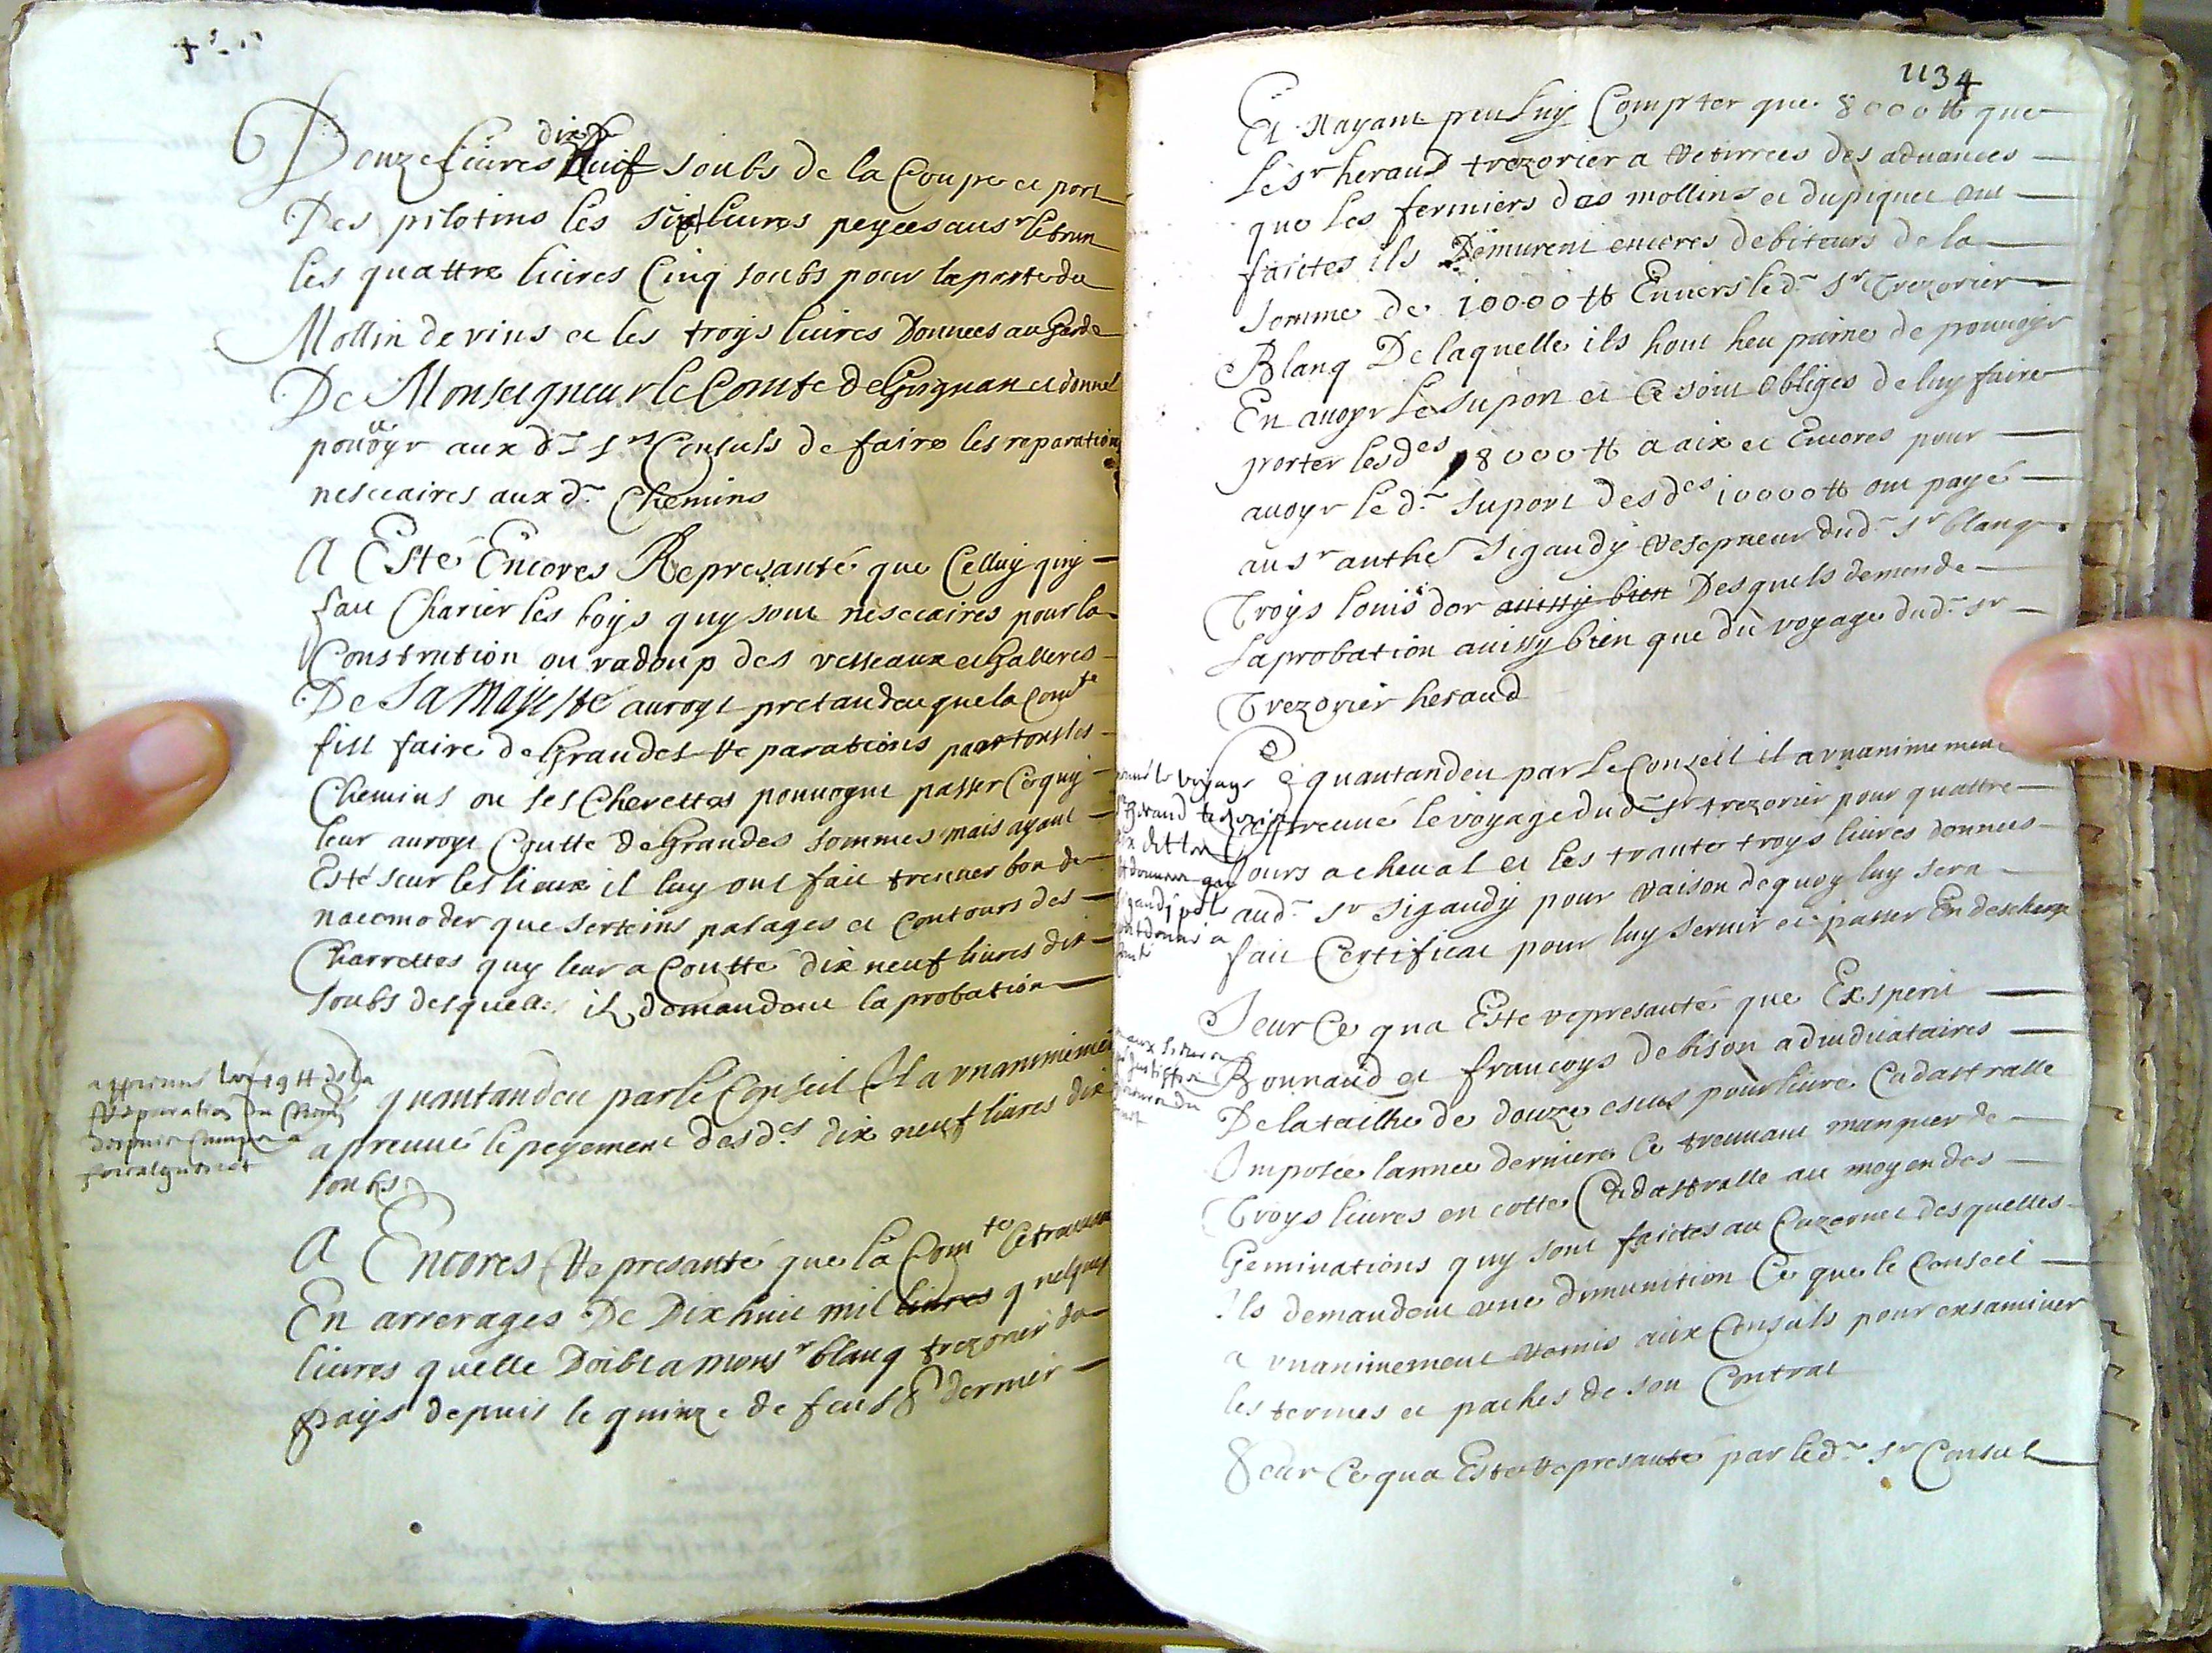 Douze livres dix huit soubs de la Coupe et port
Des pilotins les six livres peyées au sr lebrun
les quattre livres Cinq soubs pour la porte du
Mollin de vins et les troys livres Donnees au Garde
De Monseigneur le Comte de Grignan et donné
pouvoyr aux d. srs Consuls de faire les reparations
nesceaires aux d. Chemins
A Esté Encores Representé que Celluy quy
fait Charier les boys quy sont nesceaires pour la
Constrution ou radoup des vesseaux et Galleres
De Sa Majesté auroyt pretandeu que la Comte
fist faire de Grandes Reparations par tous les
Chemins ou ses Cherettes pouvoynt passer Ce quy
leur auroyt Coutté de Grandes sommes mais ayant
Esté seur les lieux il luy ont fait treuver bon de
nacomoder que serteins pasages et contours des
Charrettes quy leur a Coutté dix neuf livres dix
soubs desquelles ils demandent la probation
quantandeu par le Conseil Il a unanimement
apreuvé le peyement des des dix neuf livres dix
soubs
A Encores Represanté que la Comte Ce trouvant
En arrerages De Dix huit mil livres quelques
livres quelle Doibt a monsr blanq trezorier du
pays depuis le quinze de feuvr dernier
1134
Et Nayant peu luy Compter que 8000 tt que
le sr heraud trezorier a Retirrees des advances
que les fermiers des mollins et du piquet ont
faictes ils Demurent encores debiteurs de la
somme de 10000 tt Envers led. sr Trezorier
Blanq De laquelle ils hont heu peine de pouvoyr
En avoyr le suport et Ce sont obligés de luy faire
porter lesdes 8000 tt a aix et Encores pour
avoyr led. suport desdes 10000 tt ont payé
au sr anthe Sigaudy Resepveur dud. sr blanq
Troys louis dor auissy bien Desquels demende
laprobation auissy bien que du voyage dud. sr
Trezorier heraud
Ce quantandeu par le Conseil il a unanimement
appreuvé le voyage dud. sr trezorier pour quattre
Jours a cheval et les trante troys livres donnees
aud. sr Sigaudy pour raison dequoy luy sera
fait Certificat pour luy servir et passer En descharge
Seur Ce qua Esté represanté que Esperit
Bonnaud et francoys de bison adiudicataires
De la tailhe de douze escus pour livre Cadastralle
Imposée lannee derniere Ce treuvant manquer de
Troys livres en cotte Cadastralle au moyen des
Geminations quy sont faictes au Cazernet desquelles
Ils demandent une dimunition Ce que le Conseil
a unanimement Remis aux Consuls pour ensaminer
les termes et paches de son Contrat
Seur Ce qua Esté Represanté par led. sr Consul